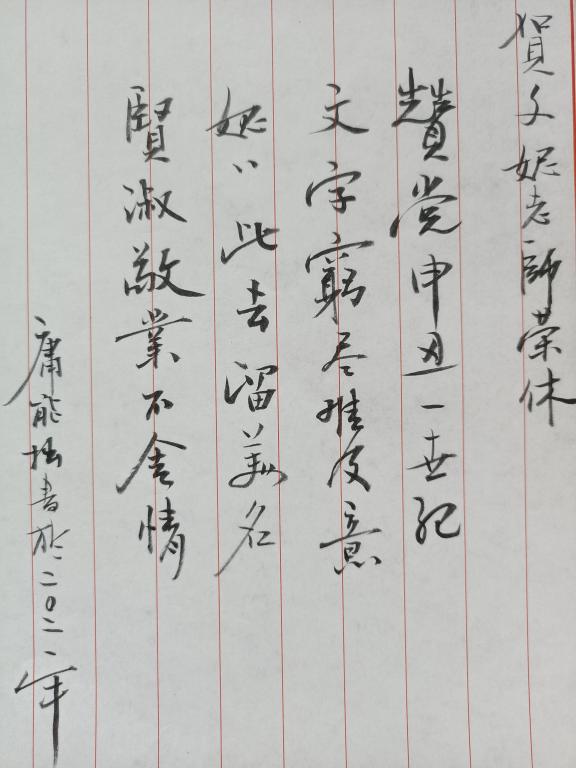 賀文妮老師荣休
赞党申丑一世紀
文字窮尽惟意
妮此去留美名
賢淑敬業不舍情
庸能拙書於二〇二一年